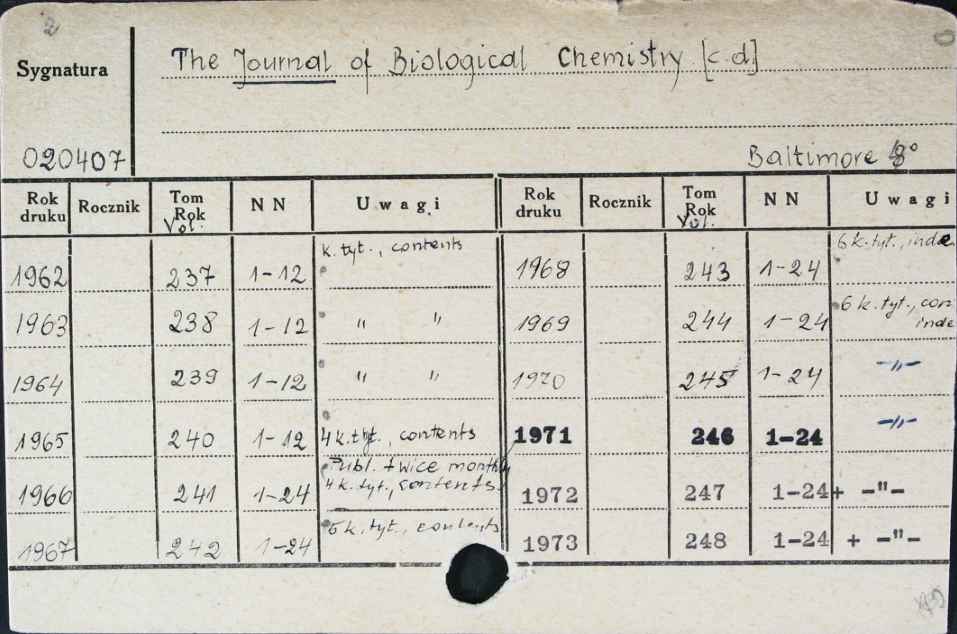 2
The Journal of Biological Chemistry [c.d]
Sygnatura
020407
Baltimore 8°
Rok druku Rocznik Tom Rok Vol. NN Uwagi Rok druku Rocznik Tom Rok Vol. NN Uwagi
1962 237 1-12 k. tyt., contents 1968 243 1-24 6 k. tyt., inde
1963 238 1-12 " " 1969 244 1-24 6 k. tyt., con inde
1964 239 1-12 " " 1970 245 1-24 -"-
1965 240 1-12 4 k. tyt., contents 1971 246 1-24 -"-
Publ. twice monthly
1966 241 1-24 4 k. tyt., contents 1972 247 1-24+ -"-
1967 242 1-24 6 k. tyt., contents 1973 248 1-24 + -"-